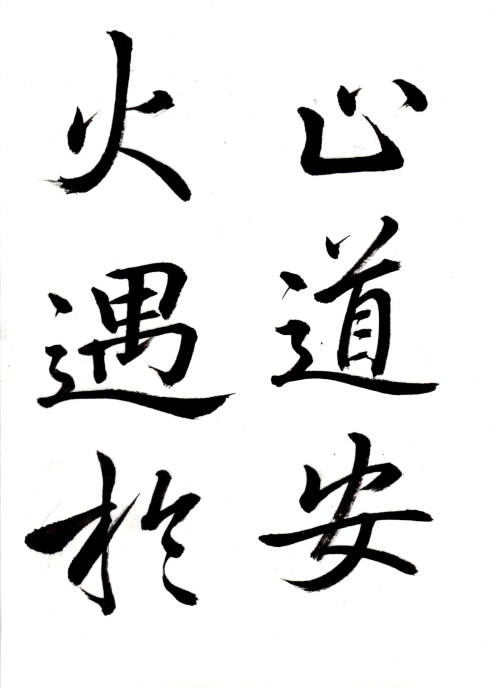 心道安
火遇於